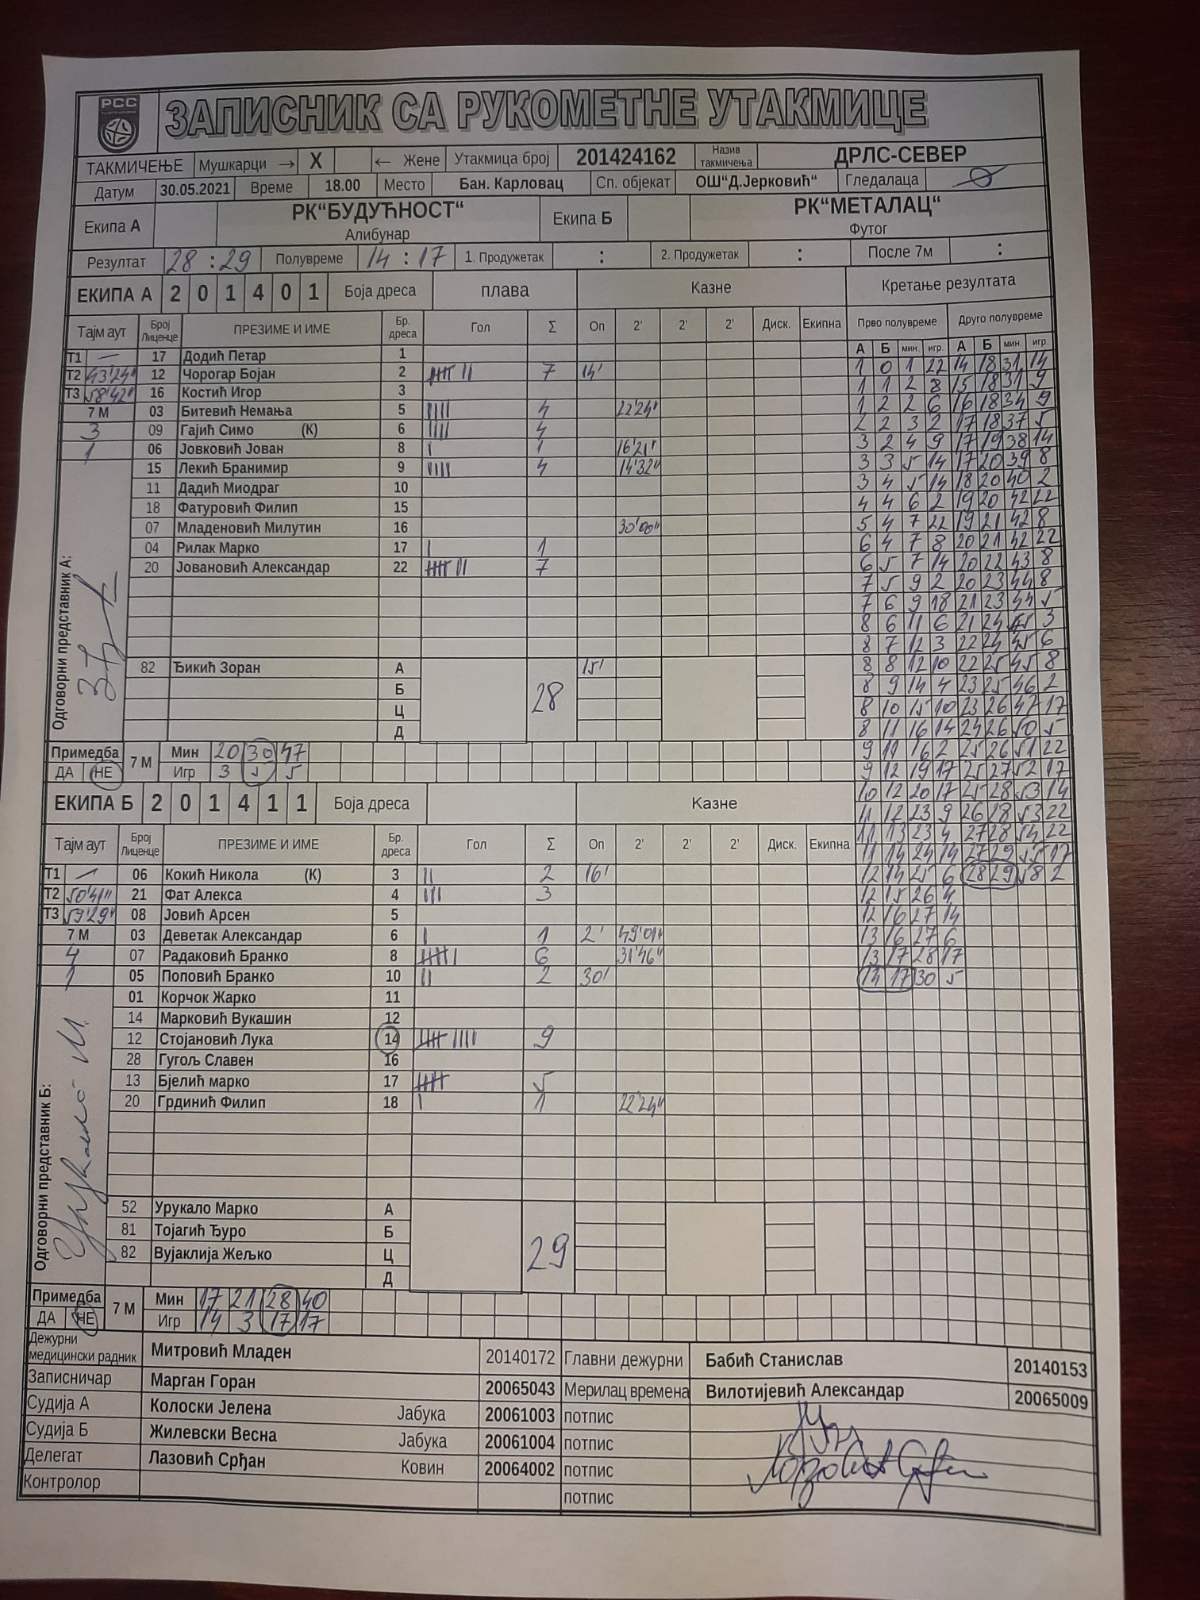 РСС
ЗАПИСНИК СА РУКОМЕТНЕ УТАКМИЦЕ
ТАКМИЧЕЊЕ Мушкарци → X ← Жене Утакмица број 201424162 Назив такмичења ДРЛС-СЕВЕР
Датум 30.05.2021 Време 18.00 Место Бан. Карловац Сп. објекат ОШ“Д.Јерковић“ Гледалаца
Екипа А РК“БУДУЋНОСТ“ Алибунар Екипа Б РК“МЕТАЛАЦ“ Футог
Резултат 28 : 29 Полувреме 14 : 17 1. Продужетак : 2. Продужетак : После 7м :
ЕКИПА А 2 0 1 4 0 1 Боја дреса плава Казне Кретање резултата
Тајм аут Број Лиценце ПРЕЗИМЕ И ИМЕ Бр. дреса Гол Σ Оп 2' 2' 2' Диск. Екипна Прво полувреме Друго полувреме
А Б мин. игр. А Б мин. игр.
T1 — 17 Додић Петар 1
T2 43'24" 12 Чорогар Бојан 2 7 14'
T3 58'42" 16 Костић Игор 3
7 М 03 Битевић Немања 5 4 22'24"
3 09 Гајић Симо (К) 6 4
1 06 Јовковић Јован 8 1 16'21"
15 Лекић Бранимир 9 4 14'32"
11 Дадић Миодраг 10
18 Фатуровић Филип 15
07 Младеновић Милутин 16 30'00"
04 Рилак Марко 17 1
20 Јовановић Александар 22 7
Одговорни представник А:
82 Ђикић Зоран А 15'
Б
28
Ц
Д
Примедба ДА НЕ 7 М Мин 20 30 47
Игр 3 5 5
1 0 1 22 14 18 31 14
1 1 2 8 15 18 31 9
1 2 2 6 16 18 34 9
2 2 3 2 17 18 37 5
3 2 4 9 17 19 38 14
3 3 5 14 17 20 39 8
3 4 5 14 18 20 40 2
4 4 6 2 19 20 42 22
5 4 7 22 19 21 42 8
6 4 7 8 20 21 42 22
6 5 7 14 20 22 43 8
7 5 9 2 20 23 44 8
7 6 9 18 21 23 44 5
8 6 11 6 21 24 45 3
8 7 12 3 22 24 45 6
8 8 12 10 22 25 45 8
8 9 14 4 23 25 46 2
8 10 15 10 23 26 47 17
8 11 16 14 24 26 50 5
9 11 16 2 25 26 51 22
9 12 19 17 25 27 52 17
10 12 20 17 25 28 53 14
11 12 23 9 26 28 53 22
11 13 23 4 27 28 54 22
11 14 24 14 27 29 55 17
12 14 25 6 28 29 58 2
12 15 26 4
12 16 27 14
13 16 27 6
13 17 28 17
14 17 30 5
ЕКИПА Б 2 0 1 4 1 1 Боја дреса Казне
Тајм аут Број Лиценце ПРЕЗИМЕ И ИМЕ Бр. дреса Гол Σ Оп 2' 2' 2' Диск. Екипна
T1 — 06 Кокић Никола (К) 3 2 16'
T2 50'41" 21 Фат Алекса 4 3
T3 59'29" 08 Јовић Арсен 5
7 М 03 Деветак Александар 6 1 2' 49'01"
4 07 Радаковић Бранко 8 6 31'46"
1 05 Поповић Бранко 10 2 30'
01 Корчок Жарко 11
14 Марковић Вукашин 12
12 Стојановић Лука 14 9
28 Гугољ Славен 16
13 Бјелић марко 17 5
20 Грдинић Филип 18 1 22'24"
Одговорни представник Б:
52 Урукало Марко А
81 Тојагић Ђуро Б
29
82 Вујаклија Жељко Ц
Д
Примедба ДА НЕ 7 М Мин 17 21 28 40
Игр 14 3 17 17
Дежурни медицински радник Митровић Младен 20140172 Главни дежурни Бабић Станислав 20140153
Записничар Марган Горан 20065043 Мерилац времена Вилотијевић Александар 20065009
Судија А Колоски Јелена Јабука 20061003 потпис
Судија Б Жилевски Весна Јабука 20061004 потпис
Делегат Лазовић Срђан Ковин 20064002 потпис
Контролор потпис